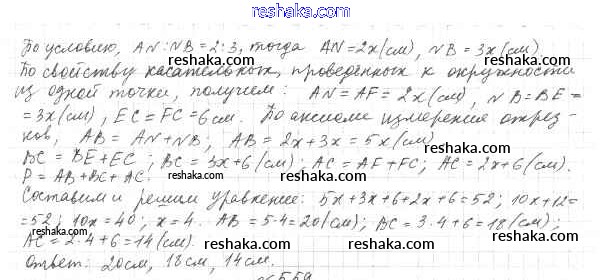 reshaka.com
По условию, AN:NB=2:3, тогда AN=2x(см), NB=3x(см)
По свойству касательных, проведённых к окружности
из одной точки, получем: AN=AF=2x(см), NB=BE=
=3x(см), EC=FC=6см. По аксиоме измерения отрез-
ков, AB=AN+NB; AB=2x+3x=5x(см)
BC=BE+EC; BC=3x+6(см); AC=AF+FC; AC=2x+6(см).
P=AB+BC+AC.
Составим и решим уравнение: 5x+3x+6+2x+6=52; 10x+12=
=52; 10x=40; x=4. AB=5·4=20(см); BC=3·4+6=18(см);
AC=2·4+6=14(см).
ответ: 20см, 18см, 14см.
№559
reshaka.com
reshaka.com
reshaka.com
reshaka.com
reshaka.com
reshaka.com
reshaka.com
reshaka.com
reshaka.com